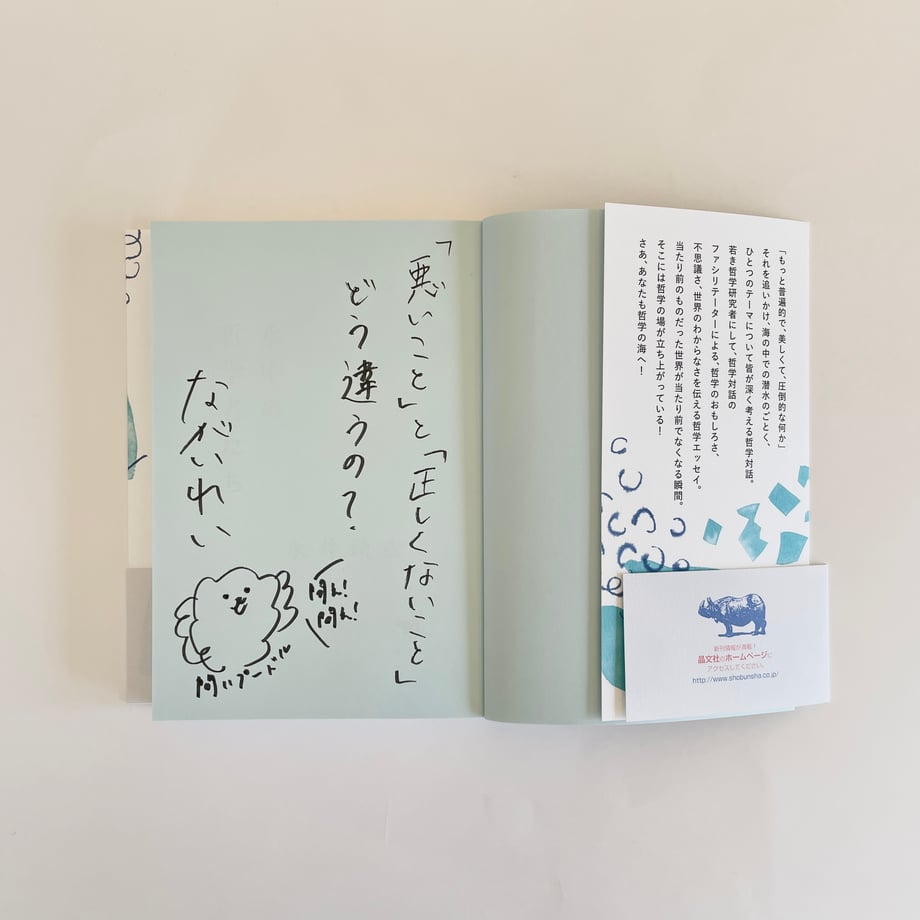 「悪いこと」と「正しくないこと」
どう違うの?
ながいれい
問ん!
問ん!
問いプードル
「もっと普遍的で、美しくて、圧倒的な何か」
それを追いかけ、海の中での潜水のごとく、
ひとつのテーマについて皆が深く考える哲学対話。
若き哲学研究者にして、哲学対話の
ファシリテーターによる、哲学のおもしろさ、
不思議さ、世界のわからなさを伝える哲学エッセイ。
当たり前のものだった世界が当たり前でなくなる瞬間。
そこには哲学の場が立ち上がっている!
さあ、あなたも哲学の海へ!
新刊情報が満載!
晶文社のホームページに
アクセスしてください。
http://www.shobunsha.co.jp/